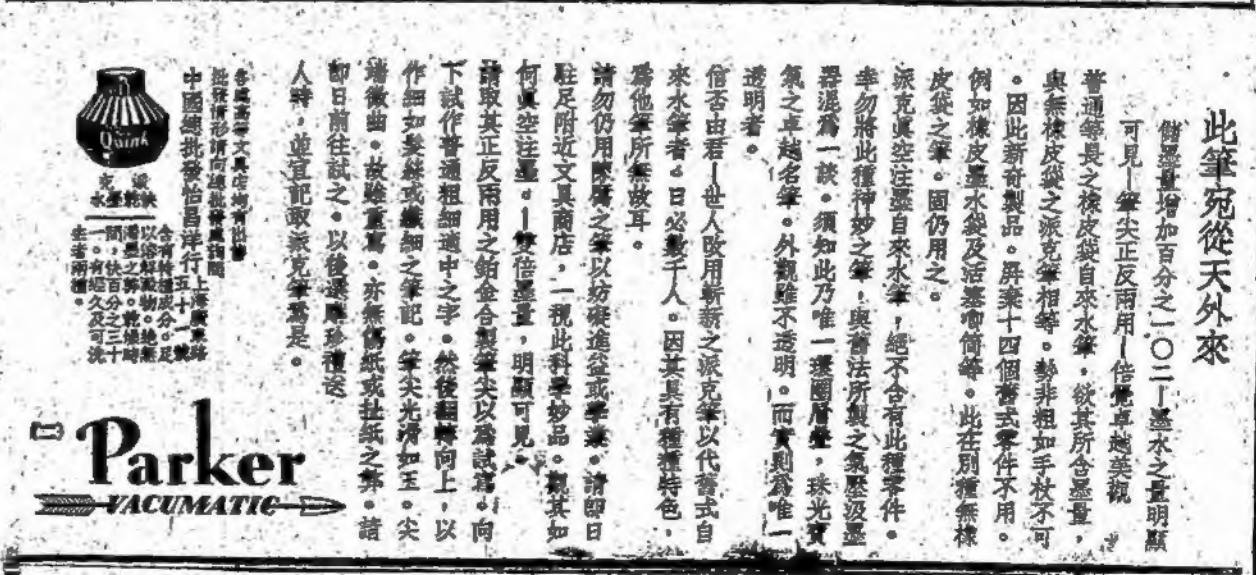 此筆宛從天外來
儲墨量增加百分之一〇二—墨水之量明顯
可見—筆尖正反兩用—倍覺卓越美觀
普通等長之橡皮袋自來水筆，欲其所含墨量，
與無橡皮袋之派克筆相等。勢非粗如手杖不可
。因此新奇製品。屏棄十四個舊式零件不用。
例如橡皮墨水袋及活塞唧筒等。此在別種無橡
皮袋之筆。固仍用之。
派克眞空注墨自來水筆，絕不含有此種零件。
幸勿將此種神妙之筆，與舊法所製之氣壓汲墨
器混爲一談。須知此乃唯一環圈層疊，珠光寶
氣之卓越名筆。外觀雖不透明。而實則爲唯一
透明者。
信否由君—世人改用嶄新之派克筆以代舊式自
來水筆者。日必數千人。因其具有種種特色，
爲他筆所無故耳。
請勿仍用陳腐之筆以妨礙進益或學業。請卽日
駐足附近文具商店，一視此科學妙品。觀其如
何眞空注墨。—雙倍墨量，明顯可見。
請取其正反兩用之鉑金合製筆尖以爲試寫。向
下試作普通粗細適中之字。然後翻轉向上，以
作細如髮絲或纖細之筆記。筆尖光滑如玉。尖
端微曲。故雖重寫。亦無傷紙或扯紙之弊。請
卽日前往試之。以後選購珍禮送
人時，並宜記取派克筆爲是。
各
文具店均有出售
批發請
情形請向總批發處詢問
中國總批發怡昌洋行
上海廣東路
五十一號
Quink
派克
快乾墨水
含有特種成分。足
以溶解澱物。絕無
滯墨之弊。乾燥時
間，快百分之三十
一。有經久及可洗
去者兩種。
Parker
VACUMATIC